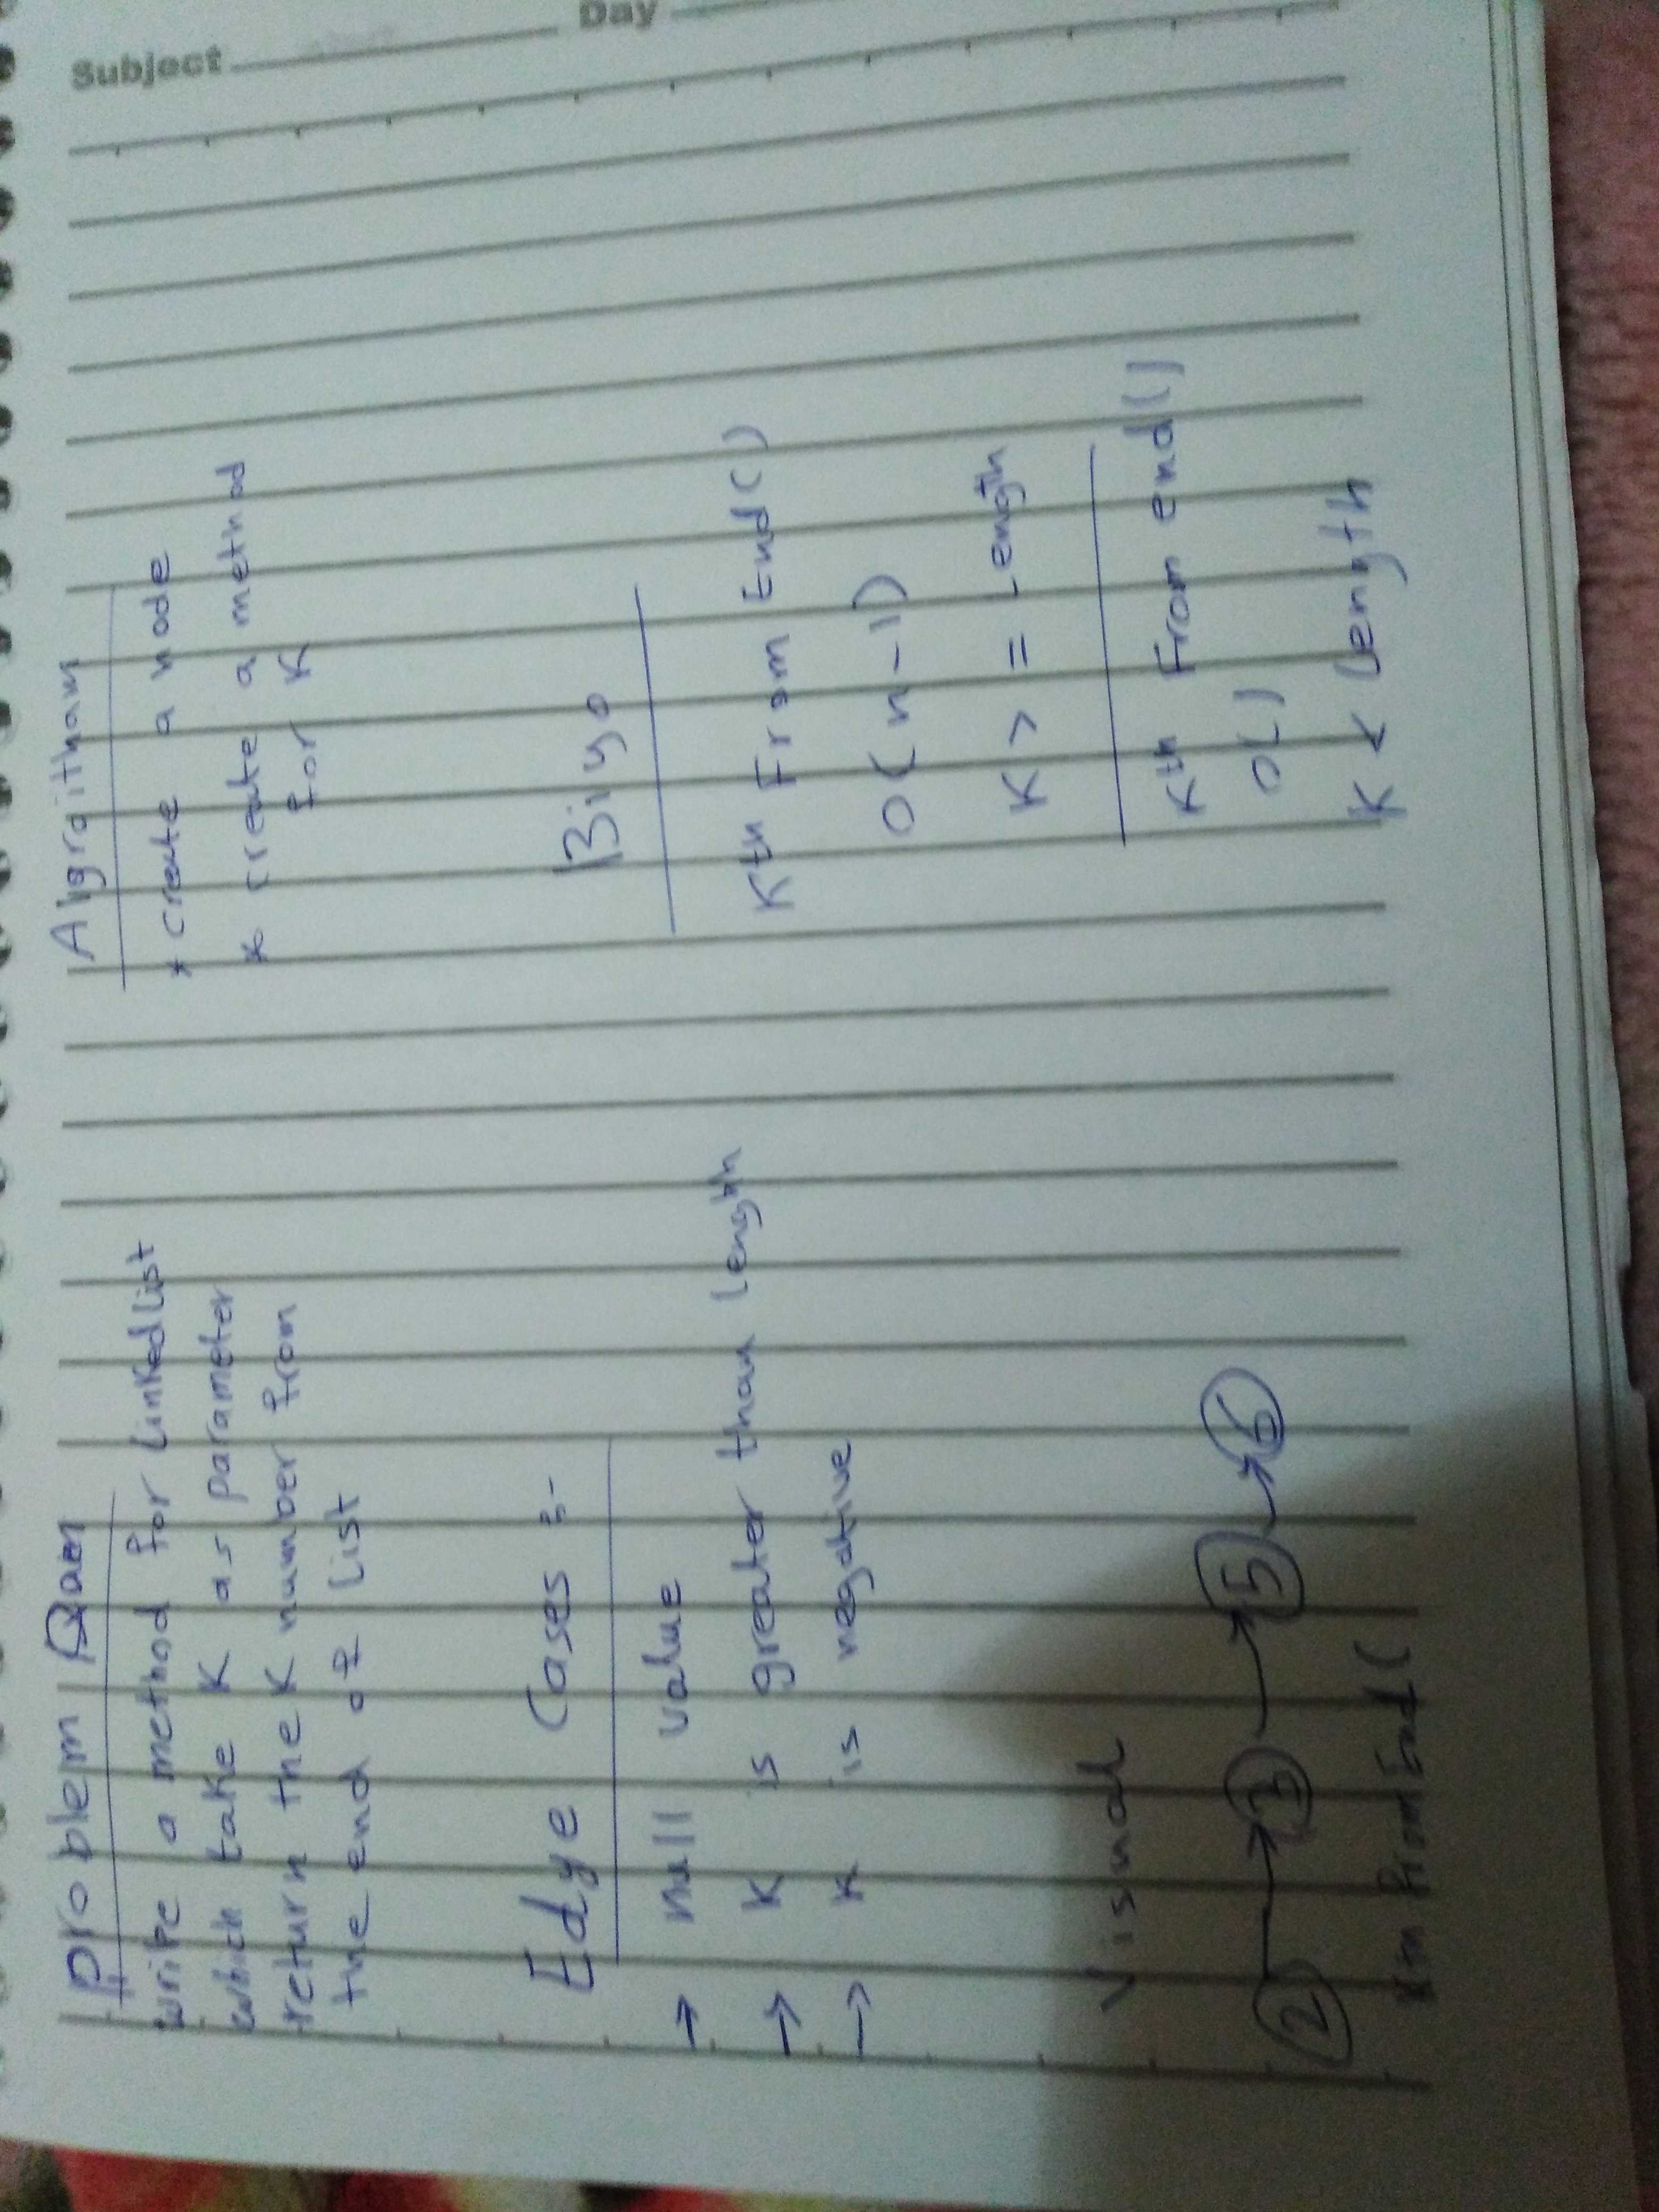 Subject
Day
Problem
write a method for Linkedlist
which take K as parameter
return the K number from
the end of list
Edye Cases :-
→ null value
→ K is greater than length
→ K is negative
Visual
2 → 3 → 5 → 6
Kth From End (
Algraitham
* create a node
* create a method
for K
Kth From End ()
O(n-1)
K > = Length
Kth From end()
O()
K < Length